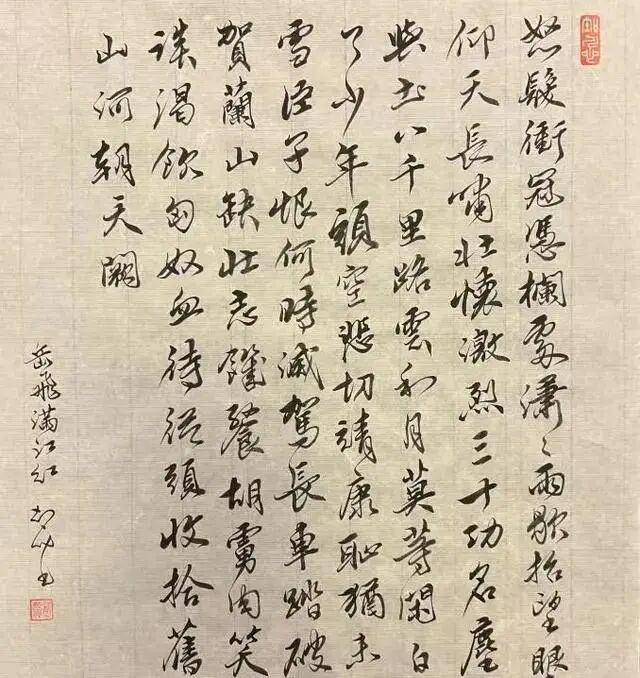 怒髮衝冠憑欄處瀟〻雨歇抬望眼
仰天長嘯壯懷激烈三十功名塵
與土八千里路雲和月莫等閑白
了少年頭空悲切靖康恥猶未
雪臣子恨何時滅駕長車踏破
賀蘭山缺壯志饑餐胡虜肉笑
談渴飲匈奴血待從頭收拾舊
山河朝天闕
岳飛滿江紅